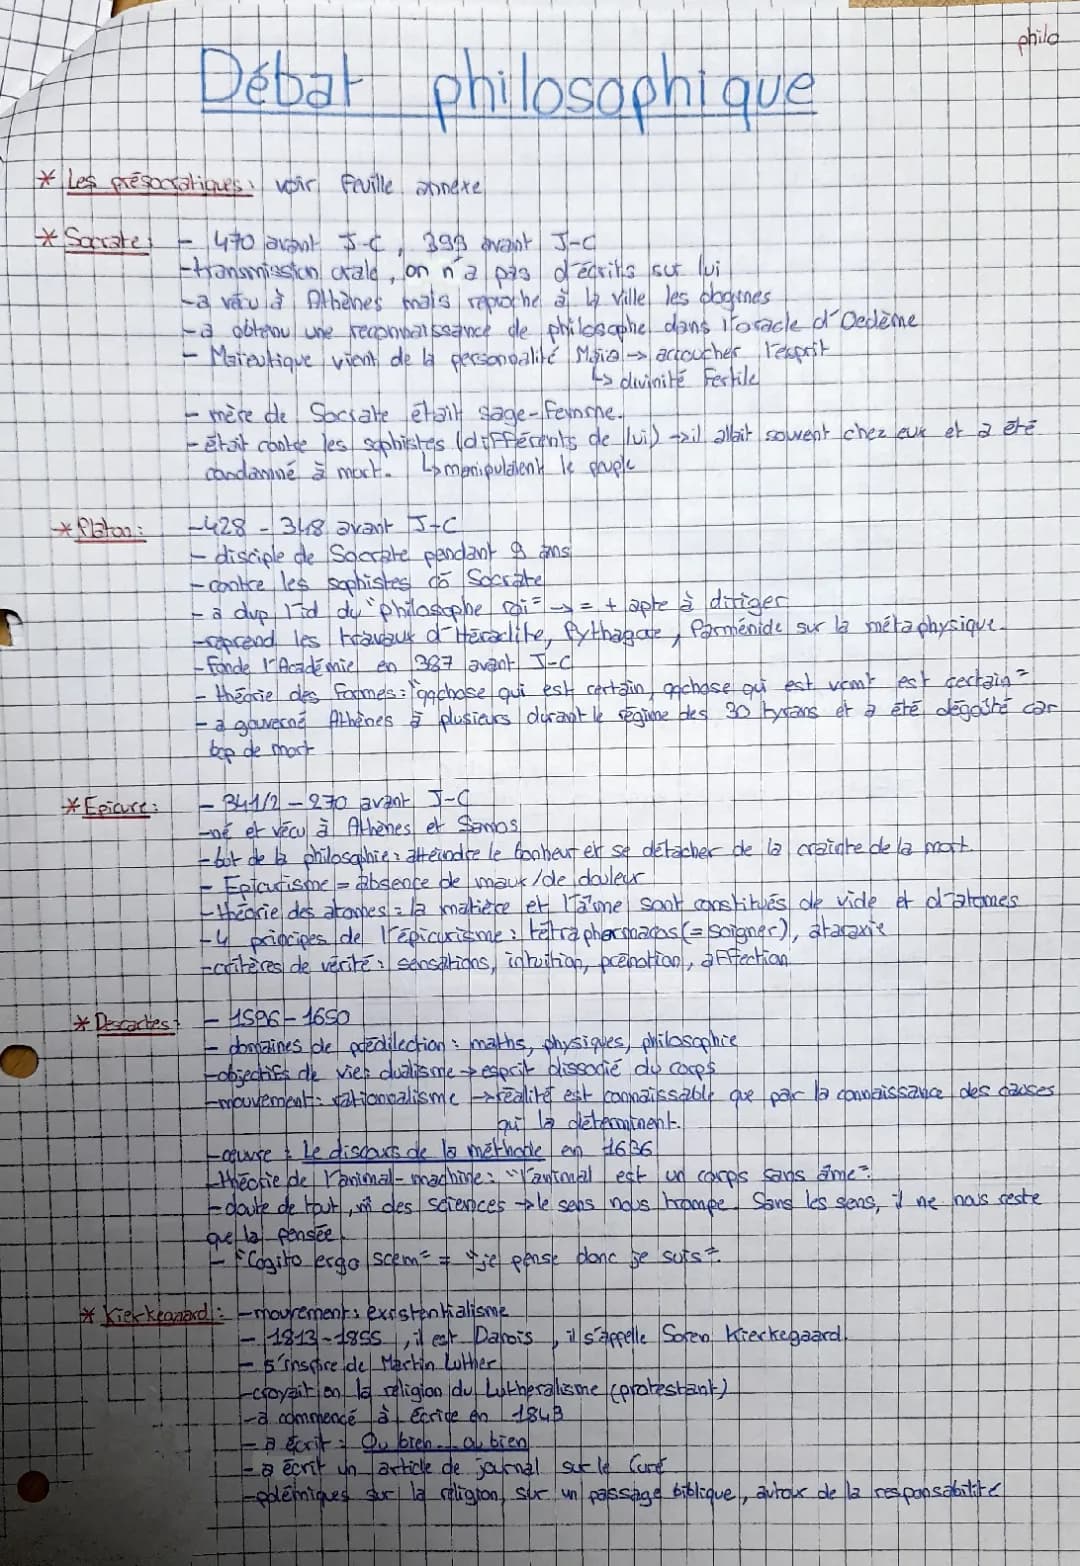 philo
Débat philosophique
* Les présocratiques: voir feuille annexe
* Socrate: - 470 avant J-C, 399 avant J-C
- transmission orale, on n'a pas d'écrits sur lui
- a vécu à Athènes mais reproche à la ville les
- a obtenu une reconnaissance de philosophe dans l'oracle d'Oedème
- Maïeutique vient de la personnalité Maïa → accoucher l'esprit
↳ divinité fertile
- mère de Socrate était sage-femme.
- était contre les sophistes (différents de lui) → il allait souvent chez eux et a été
condamné à mort. ↳ manipulaient le peuple
* Platon: - 428 - 348 avant J-C
- disciple de Socrate pendant 9 ans
- contre les sophistes cô Socrate
- a dvp l'id du "philosophe roi" → = + apte à diriger
- reprend les travaux d'Héraclite, Pythagore, Parménide sur la métaphysique.
- fonde l'Académie en 387 avant J-C
- théorie des formes: "qqchose qui est certain, qqchose qui est vrmt est certain"
- a gouverné Athènes à plusieurs durant le régime des 30 tyrans et a été dégoûté car
bcp de mort
* Epicure: - 341/2 - 270 avant J-C
- né et vécu à Athènes et Samos
- but de la philosophie: atteindre le bonheur et se détacher de la crainte de la mort.
- Epicurisme = absence de maux/de douleur
- théorie des atomes = la matière et l'âme sont constitués de vide et d'atomes
- 4 principes de l'épicurisme: tétrapharmacos (= soigner), ataraxie
- critères de vérité: sensations, intuition, prénotion, affection
* Descartes: - 1596 - 1650
- domaines de prédilection: maths, physiques, philosophie
- objectifs de vie: dualisme → esprit dissocié du corps
- mouvement: rationnalisme → réalité est connaissable que par la connaissance des causes
qui la déterminent.
- œuvre: Le discours de la méthode en 1636
- théorie de l'animal-machine: "l'animal est un corps sans âme".
- doute de tout, m̂ des sciences → le sens nous trompe. Sans les sens, il ne nous reste
que la pensée.
- "Cogito ergo scem" = "je pense donc je suis".
* Kierkegaard: - mouvement: existentialisme
- 1813 - 1855, il est Danois, il s'appelle Soren Kierckegaard.
- s'inspire de Martin Luther
- croyait en la religion du Lutheralisme (protestant)
- a commencé à écrire en 1843
- a écrit: Ou bien... ou bien
- a écrit un article de journal sur le Curé
- polémiques sur la religion, sur un passage biblique, autour de la responsabilité